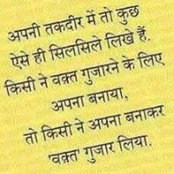 अपनी तकदीर में तो कुछ
ऐसे ही सिलसिले लिखे हैं.
किसी ने वक़्त गुजारने के लिए
अपना बनाया,
तो किसी ने अपना बनाकर
'वक़्त' गुजार लिया.